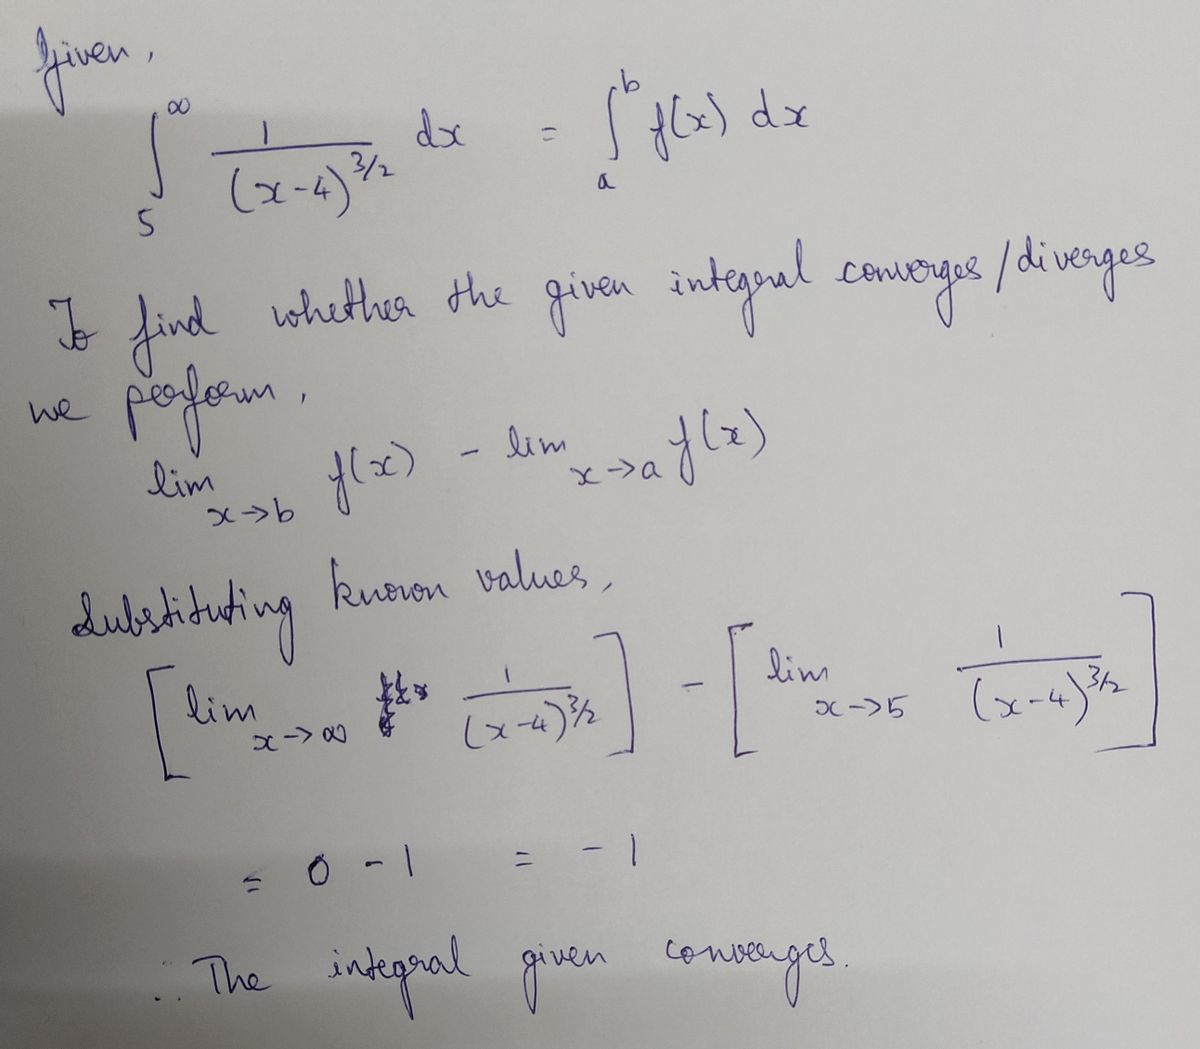 Given,
∫₅^∞ 1/(x-4)^{3/2} dx = ∫ₐ^b f(x) dx
To find whether the given integral converges/diverges
we perform,
lim_{x→b} f(x) - lim_{x→a} f(x)
Substituting known values,
[lim_{x→∞} 1/(x-4)^{3/2}] - [lim_{x→5} 1/(x-4)^{3/2}]
= 0 - 1 = -1
∴ The integral given converges.